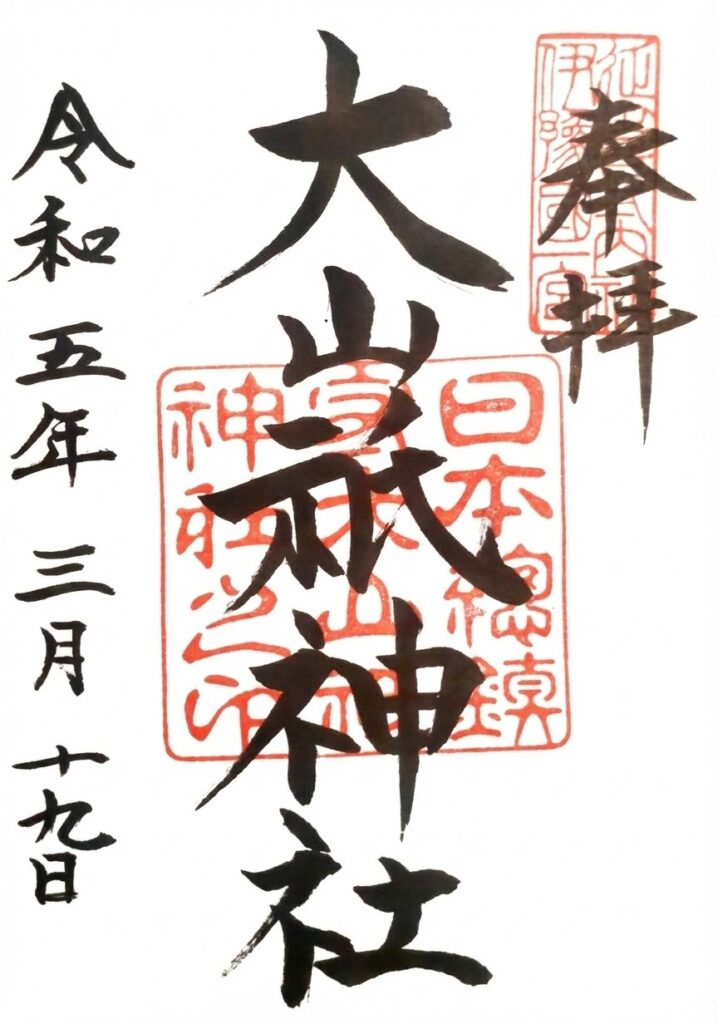 奉拝
伊豫國一宮
大山祇神社
日本總鎮
守大山
神社之印
令和五年三月十九日